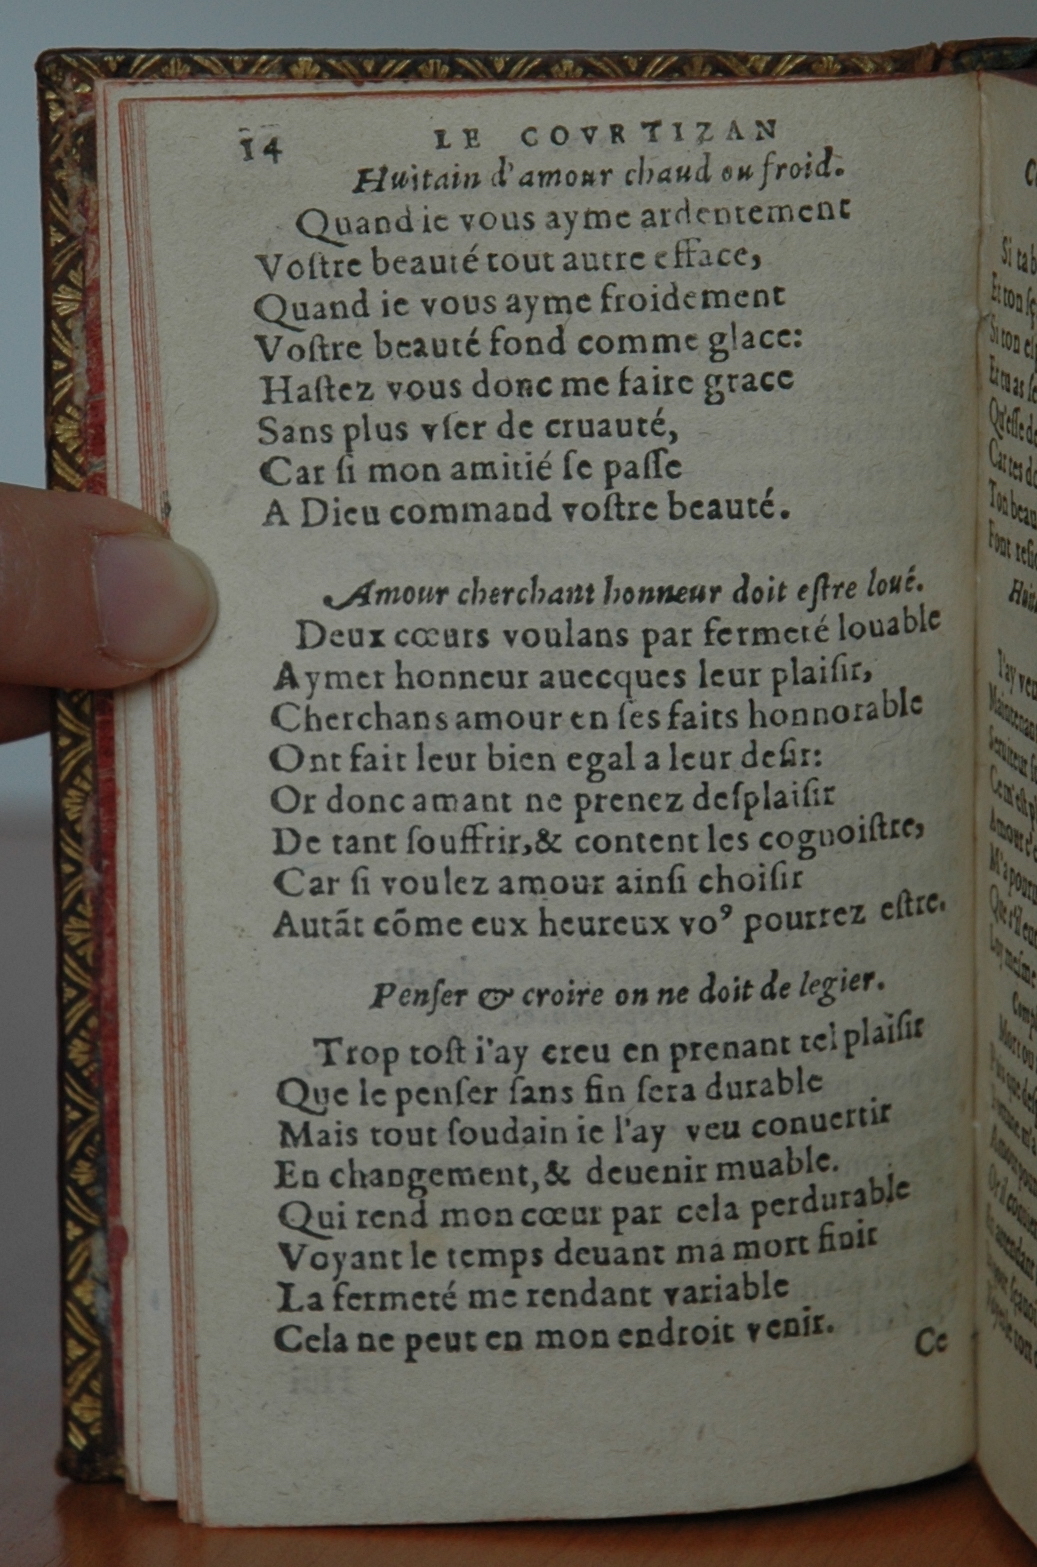 14 LE COVRTIZAN
Huitain d'amour chaud ou froid.
Quand ie vous ayme ardentement
Voſtre beauté tout autre efface,
Quand ie vous ayme froidement
Voſtre beauté fond comme glace:
Haſtez vous donc me faire grace
Sans plus vſer de cruauté,
Car ſi mon amitié ſe paſſe
A Dieu command voſtre beauté.
Amour cherchant honneur doit eſtre loué.
Deux cœurs voulans par fermeté louable
Aymer honneur auecques leur plaiſir,
Cherchans amour en ſes faits honnorable
Ont fait leur bien egal a leur deſir:
Or donc amant ne prenez deſplaiſir
De tant ſouffrir,& content les cognoiſtre,
Car ſi voulez amour ainſi choiſir
Autãt cõme eux heureux voꝰ pourrez eſtre.
Penſer & croire on ne doit de legier.
Trop toſt i'ay creu en prenant tel plaiſir
Que le penſer ſans fin ſera durable
Mais tout ſoudain ie l'ay veu conuertir
En changement,& deuenir muable.
Qui rend mon cœur par cela perdurable
Voyant le temps deuant ma mort finir
La fermeté me rendant variable
Cela ne peut en mon endroit venir.
Ce
Si ta b
Et ton ſç
Si ton eſ
Et tu as ſe
Qu'eſſe de
Car tes do
Ton beau
Font reſi
I'ay ven
Maintenant
Seruiteur
Amour
M'a pour